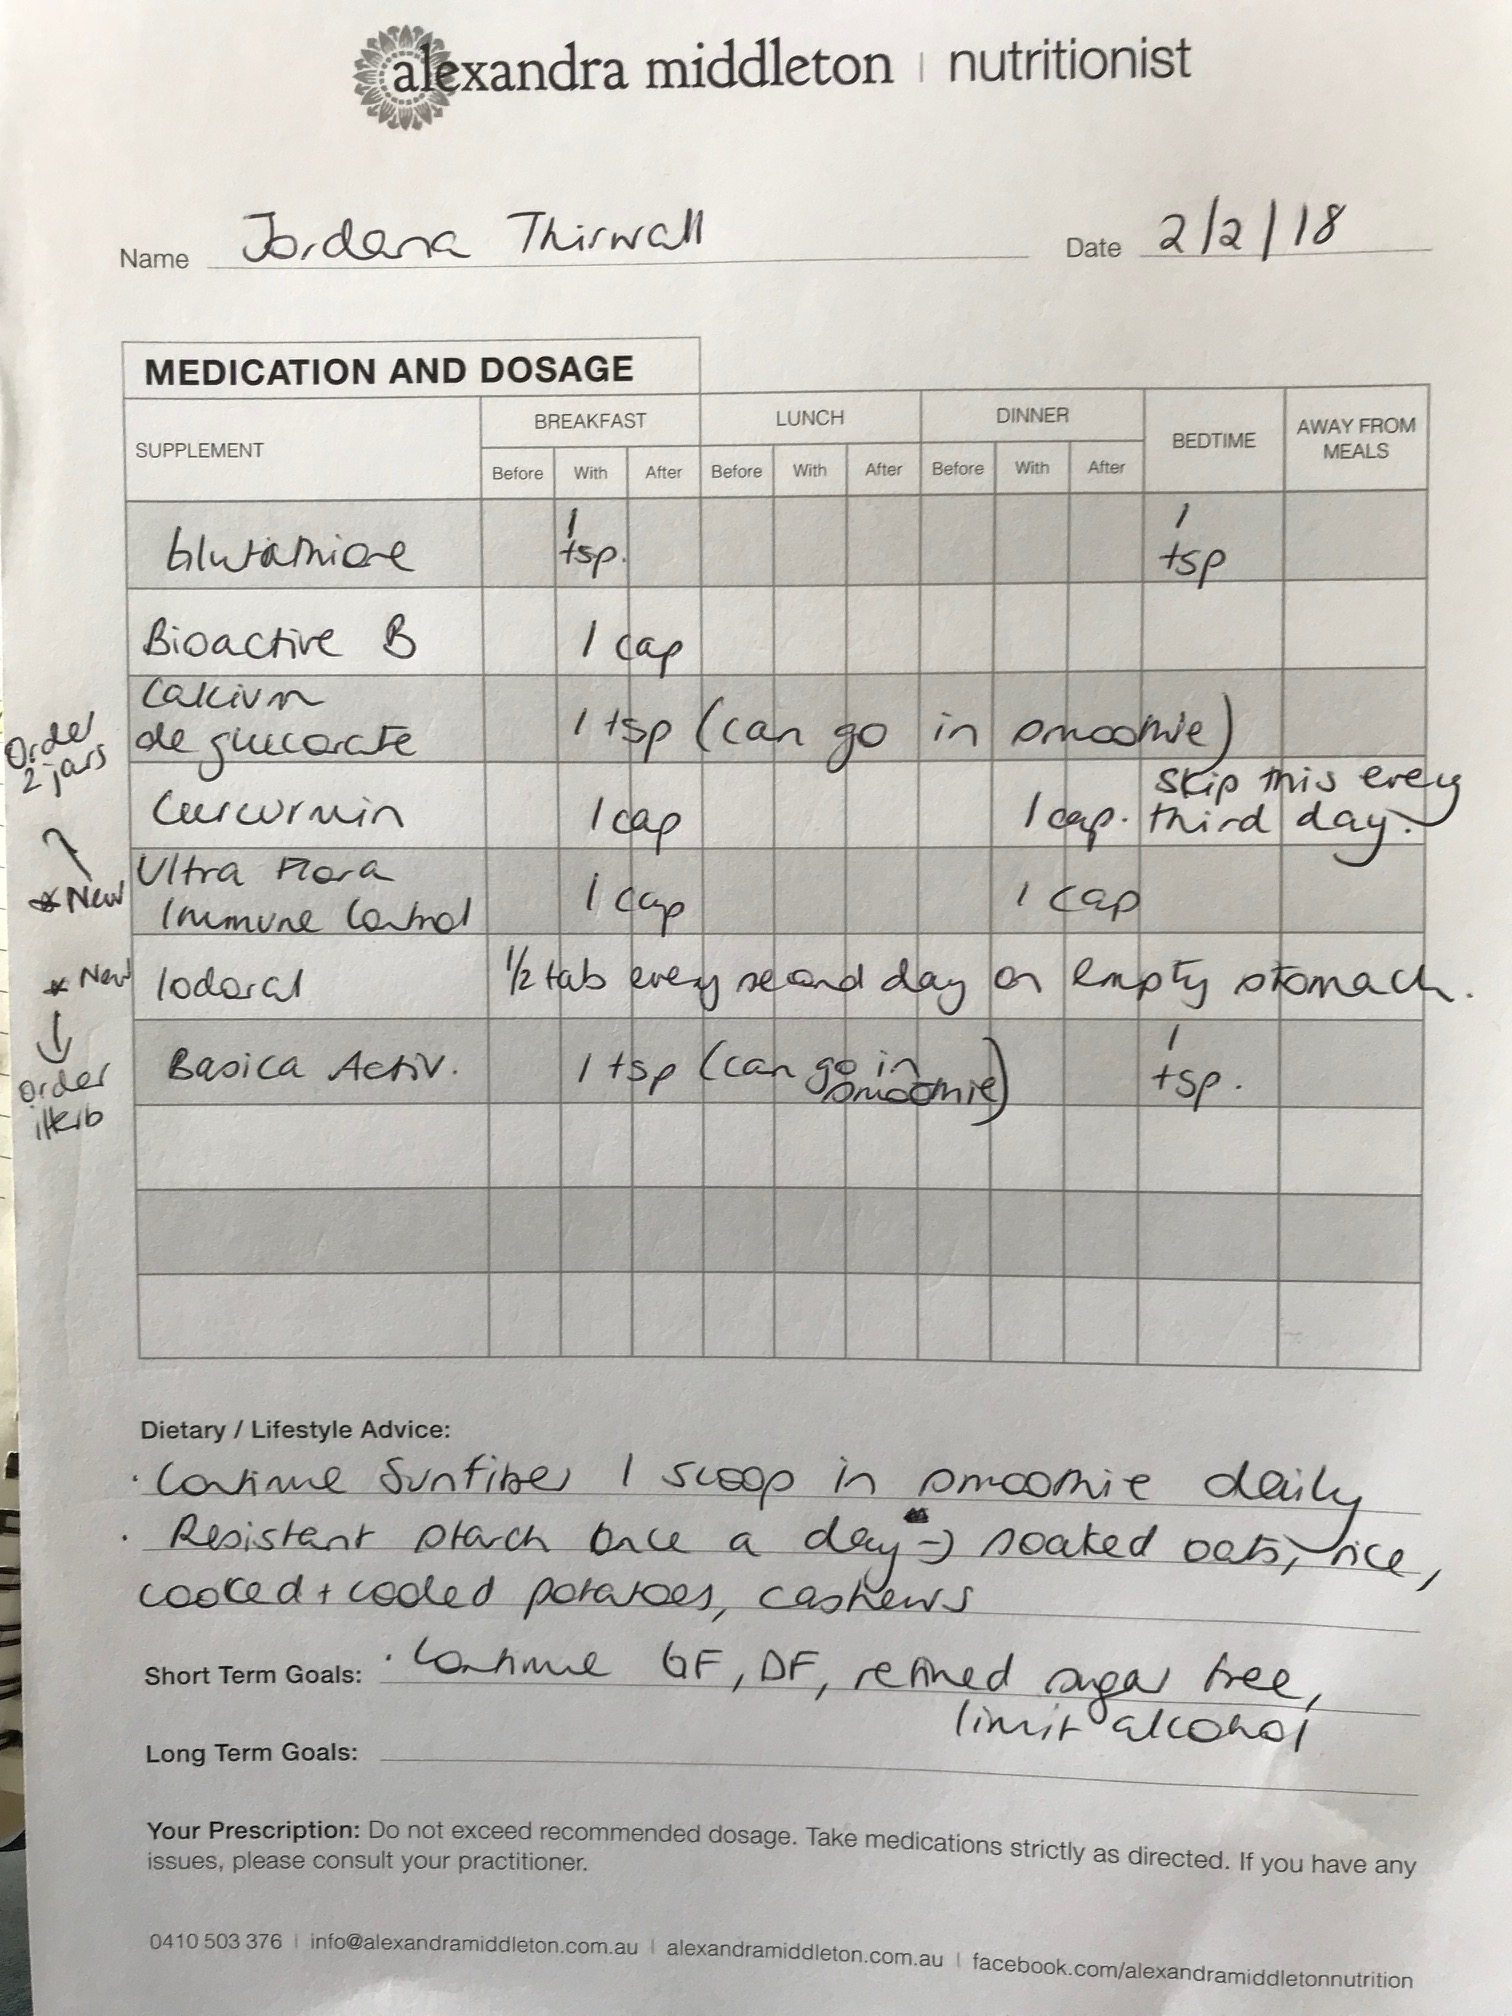 alexandra middleton | nutritionist
Name Jordana Thirwall Date 2/2/18
MEDICATION AND DOSAGE
SUPPLEMENT BREAKFAST LUNCH DINNER BEDTIME AWAY FROM MEALS
Before With After Before With After Before With After
Glutathione 1 tsp. 1 tsp
Bioactive B 1 cap
Calcium
de glucarate 1 tsp (can go in smoothie)
Order
2 jars
Curcumin 1 cap 1 cap. skip this every
third day.
* New
Ultra Flora
Immune Control 1 cap 1 cap
* New Iodoral 1/2 tab every second day on empty stomach.
↓
order
iHerb
Basica Activ. 1 tsp (can go in
smoothie) 1 tsp.
Dietary / Lifestyle Advice:
· Continue Sunfiber 1 scoop in smoothie daily
· Resistant starch once a day → soaked oats, rice,
cooked + cooled potatoes, cashews
Short Term Goals: · Continue GF, DF, refined sugar free,
limit alcohol
Long Term Goals:
Your Prescription: Do not exceed recommended dosage. Take medications strictly as directed. If you have any
issues, please consult your practitioner.
0410 503 376 | info@alexandramiddleton.com.au | alexandramiddleton.com.au | facebook.com/alexandramiddletonnutrition